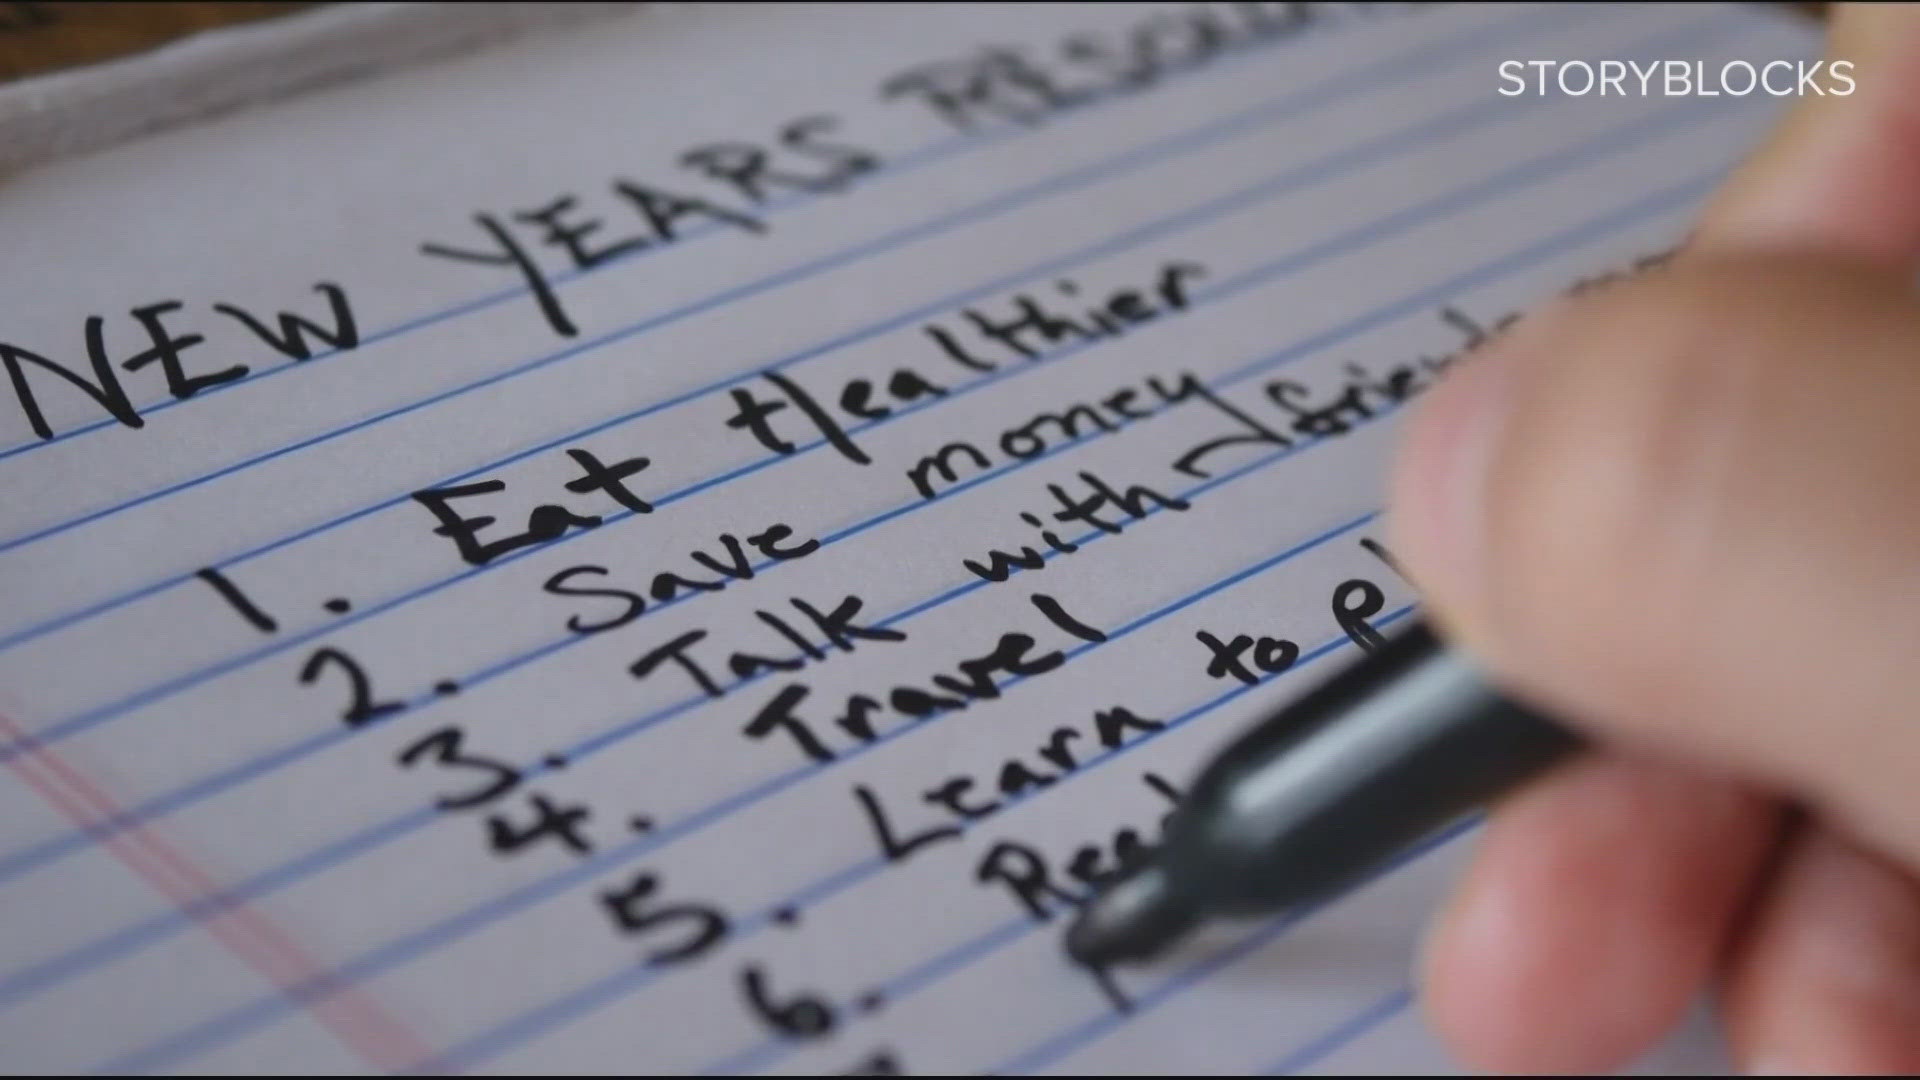 STORYBLOCKS
NEW YEARS
1. Eat Healthier
2. Save money
3. Talk with friends
4. Travel
5. Learn to
6. Read